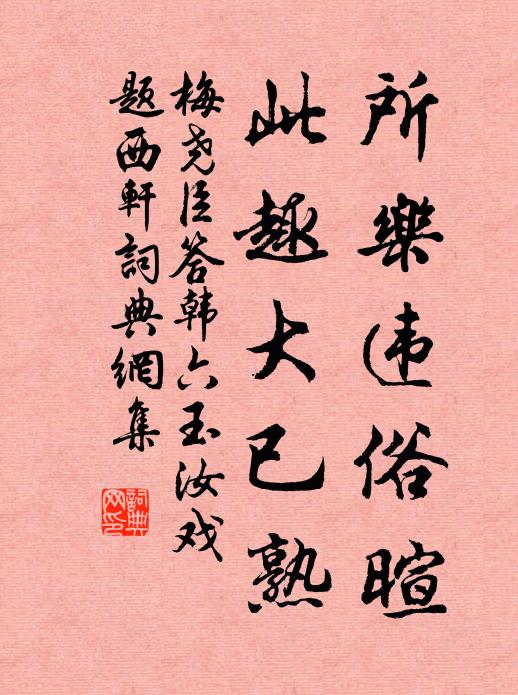 所樂违俗暄
此趣大已熟
梅尧臣答韩六玉汝戏
题西軒詞典網集
詞典网印